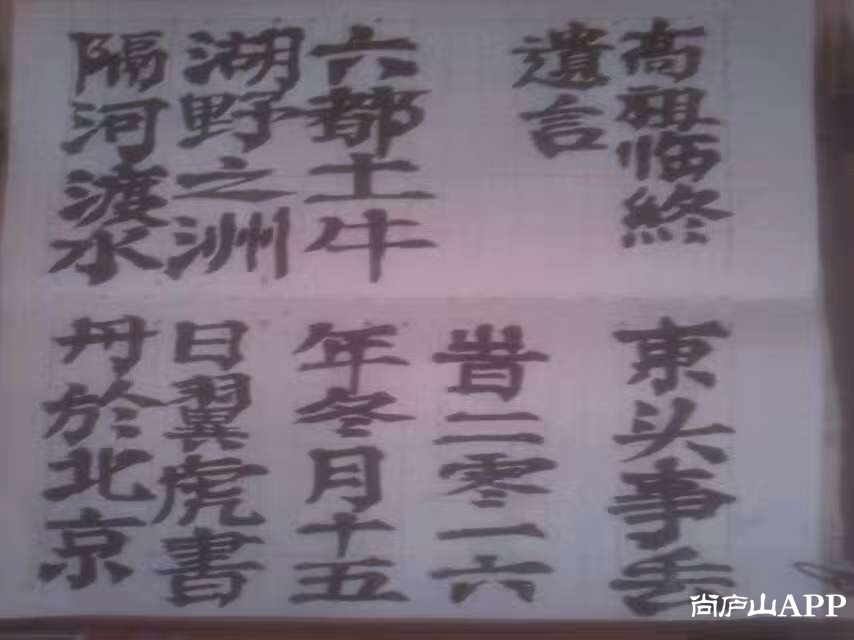 高祖临終
遺言
六都土牛
湖野之洲
隔河渡水
東头事丢
旹二零一六
年冬月十五
日翼虎書
丹於北京
尚庐山APP